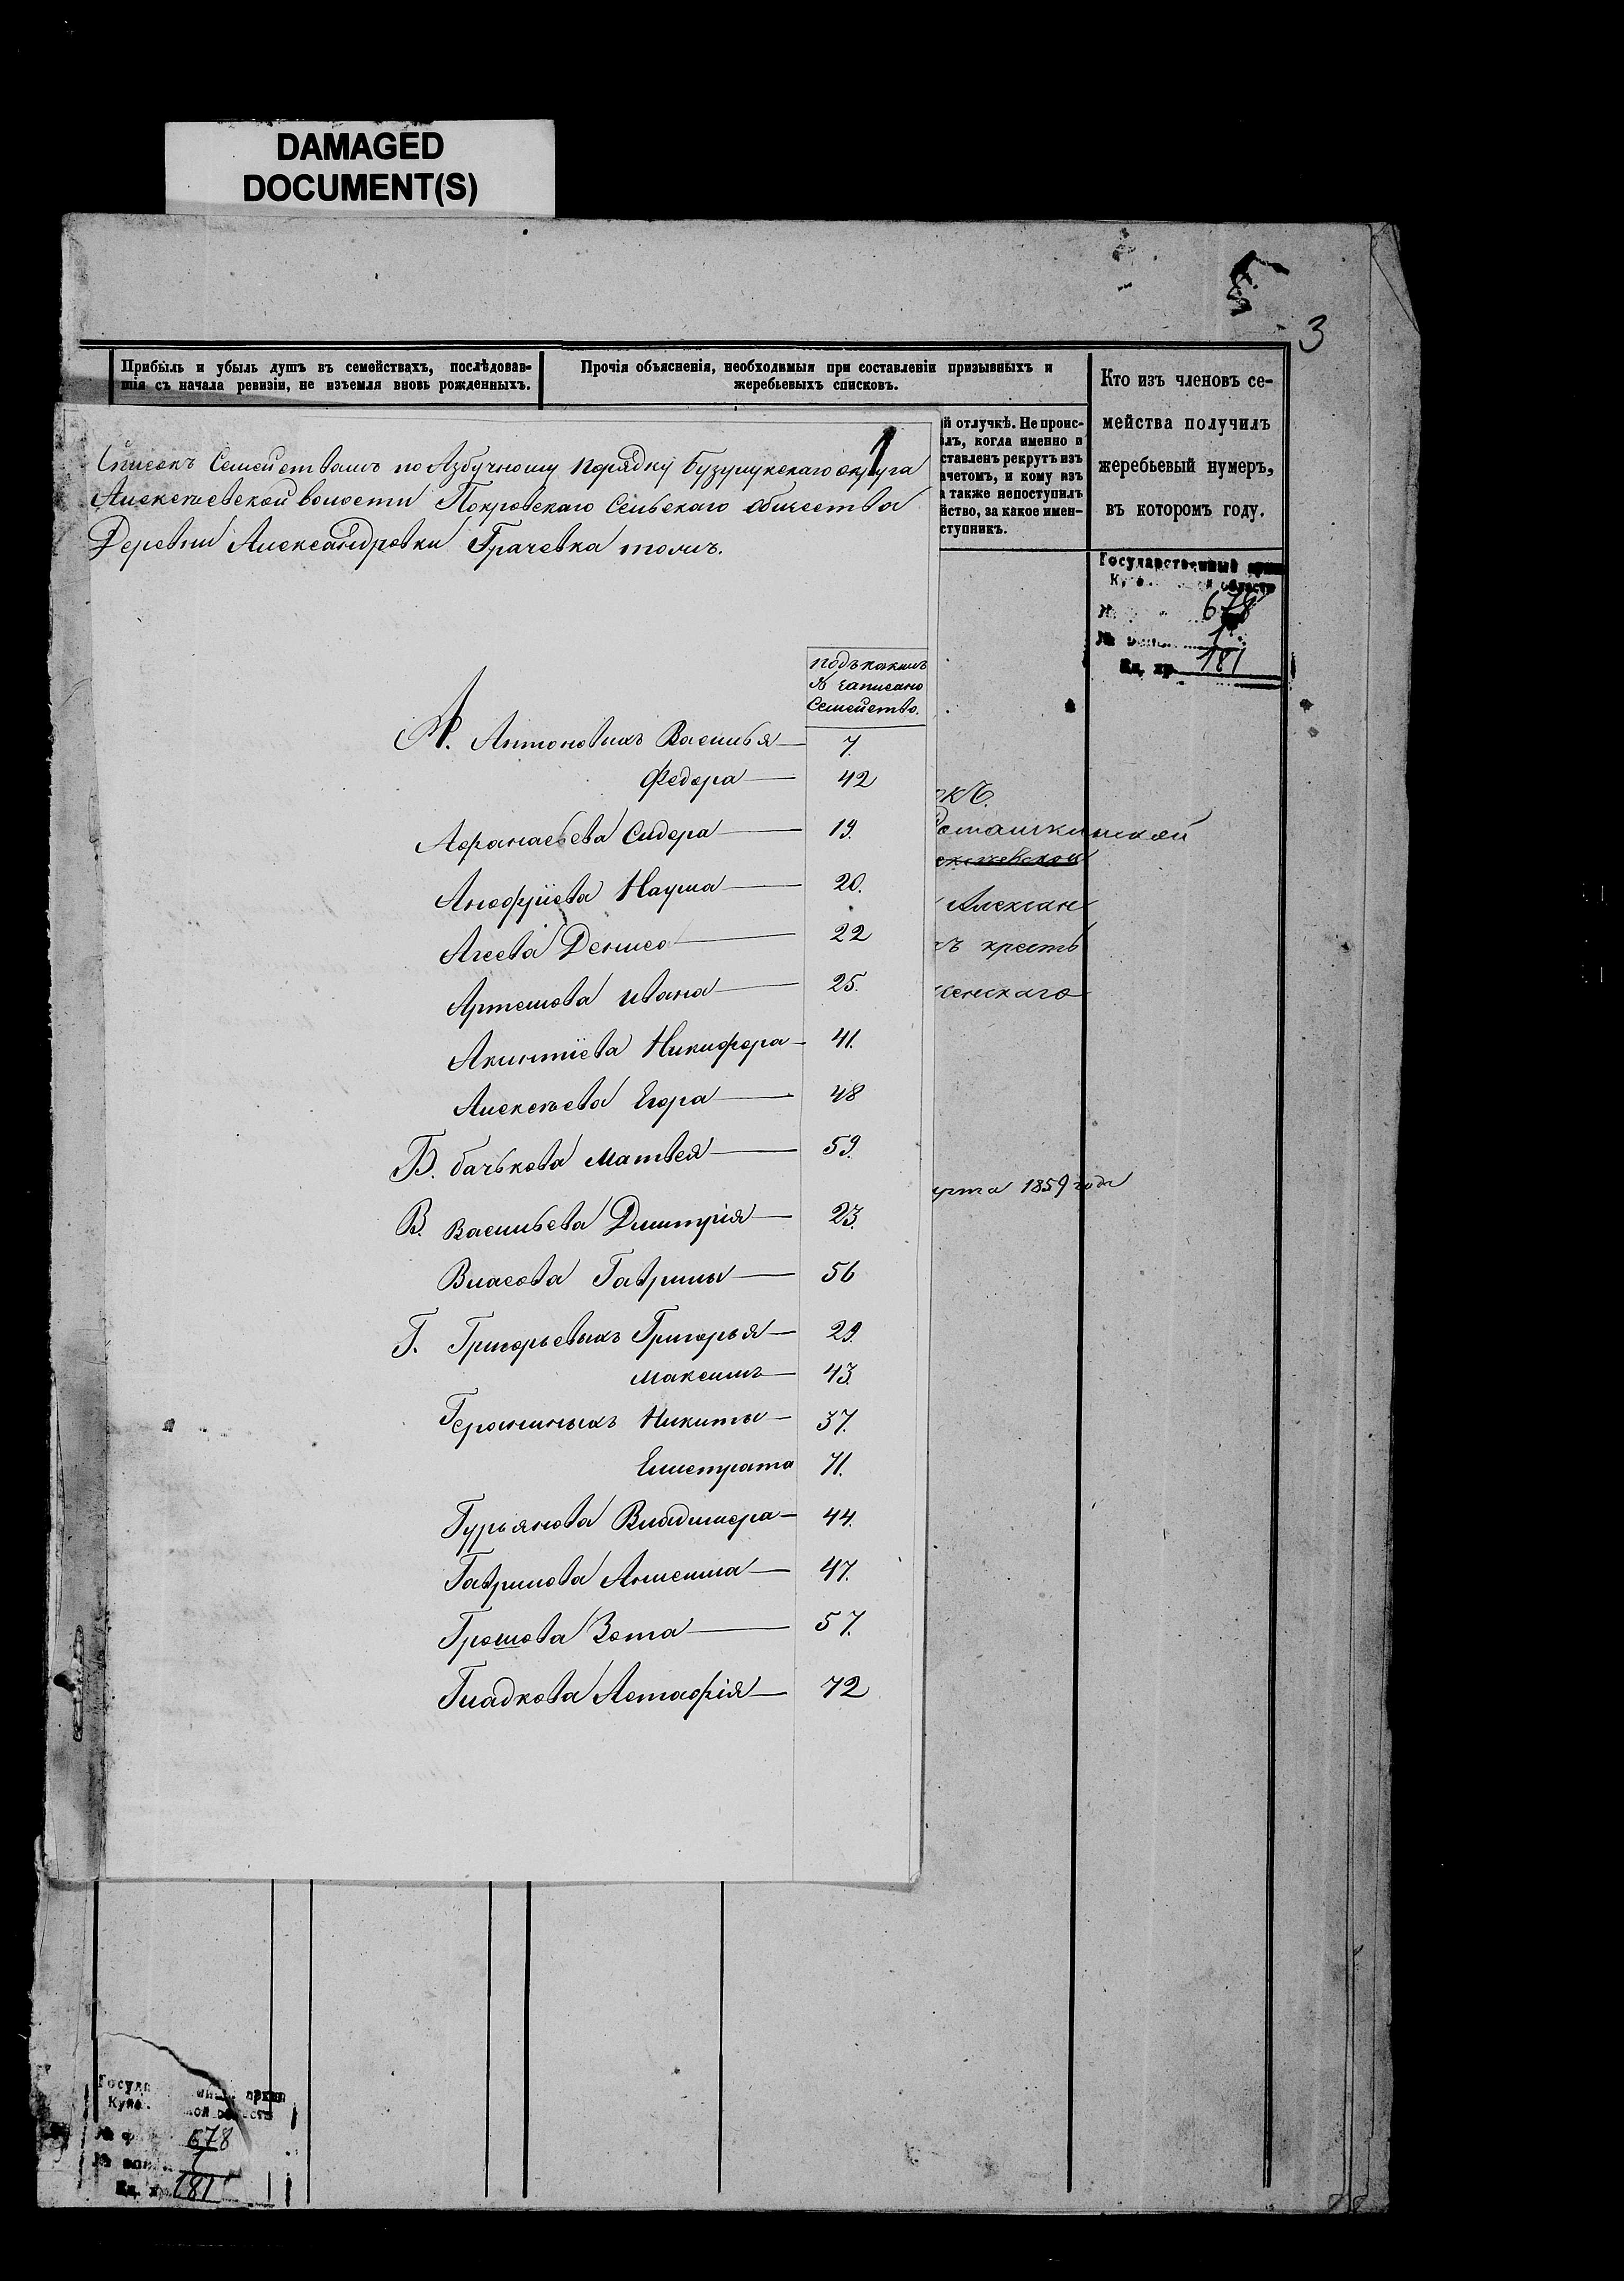 DAMAGED
DOCUMENT(S)
3
Прибыль и убыль душъ въ семействахъ, послѣдовав-
шія съ начала ревизіи, не изъемля вновь рожденныхъ.
Прочія объясненія, необходимыя при составленіи призывныхъ и
жеребьевыхъ списковъ.
Кто изъ членовъ се-
мейства получилъ
жеребьевый нумеръ,
въ которомъ году.
й отлучкѣ. Не проис-
лъ, когда именно и
ставленъ рекрутъ изъ
ачетомъ, и кому изъ
а также непоступилъ
йство, за какое имен-
ступникъ.
1
Списокъ Семействамъ по Азбучному порядку Бузулукскаго округа
Алексѣевской волости Покровскаго Сельскаго общества
Деревни Александровки Грачевка тожъ.
Государственный архив
области
678
1
Ед. хр. 181
подъ какимъ
№ записано
Семейство.
А. Антоновыхъ Василья 7.
Федора 42
Афанасьева Сидора 19.
Анофріева Наума 20.
Агеева Дениса 22
Артемова Ивана 25.
Акинтіева Никифора 41.
Алексѣева Егора 48
Б. Бачькова Матвея 59.
В. Васильева Дмитрія 23.
Власова Гаврилы 56
Г. Григорьевыхъ Григорья 29.
Максима 43.
Гераниныхъ Никиты 37.
Елистрата 71.
Гурьянова Владимера 44.
Гаврилова Анисима 47.
Громова Зота 57.
Гладкова Астафія 72
окъ
Ромашкинской
Алексан
ъ кресть
ленскаго
уста 1859 года
архив
678
1
Ед. х. 181